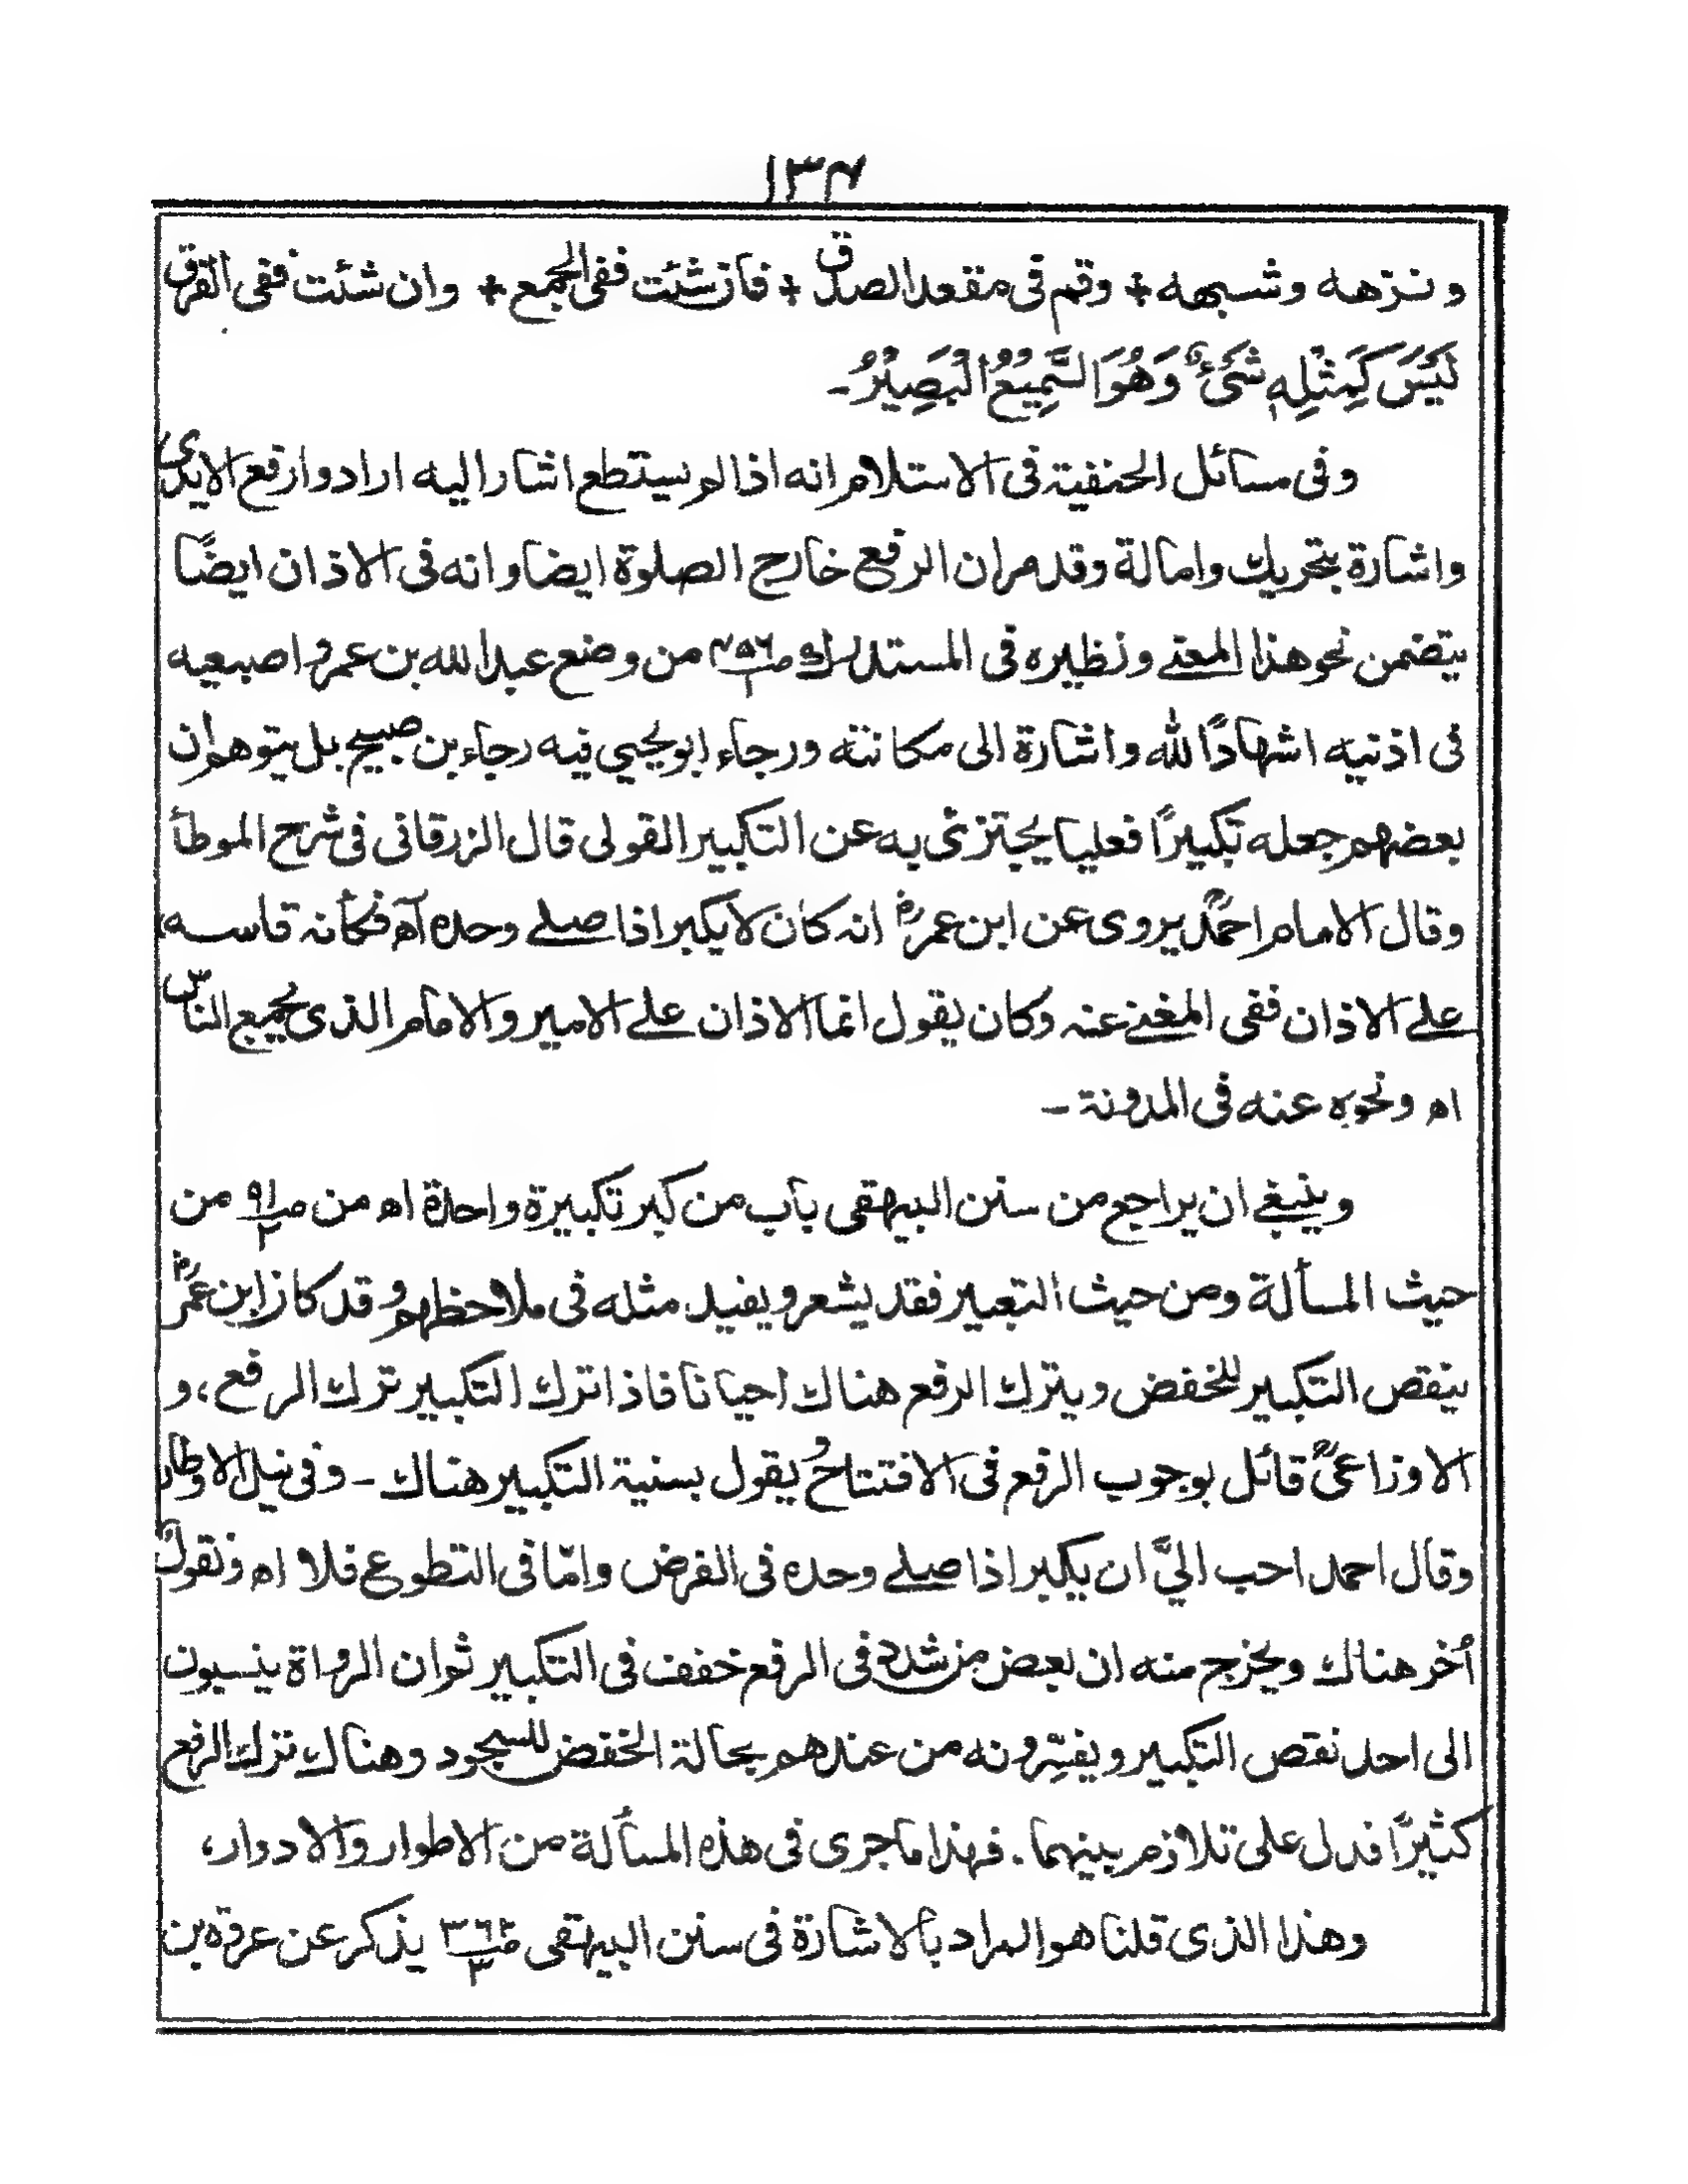 ۱۳۴
ونزهه وشبهه * وقم فى مقعد الصدق * فان شئت ففى الجمع * وان شئت ففى الفرق
لَيْسَ كَمِثْلِهٖ شَىْءٌ وَهُوَ السَّمِيْعُ الْبَصِيْرُ۔
وفى مسائل الحنفية فى الاستلام انه اذا لم يستطع اشار اليه ارادوا رفع الايدى
واشارة بتحريك وامالة وقد مران الرفع خارج الصلوة ايضا وانه فى الاذان ايضًا
يتضمن نحو هذا المعنے ونظيره فى المستدرك صـ ۴۵۶/۱ من وضع عبد الله بن عمرو اصبعيه
فى اذنيه اشهادًا لله واشارة الى مكانته ورجاء ابو يحيى فيه رجاء بن صبيح بل يتوهم ان
بعضهم جعله تكبيرًا فعليا يجتزئ به عن التكبير القولى قال الزرقانى فى شرح الموطأ
وقال الامام احمدؒ يروى عن ابن عمرؓ انه كان لا يكبر اذا صلے وحده آه فكأنه قاسه
علے الاذان ففى المغنے عنه وكان يقول انما الاذان علے الامير والامام الذى يجمع الناس
اه ونحوه عنه فى المدونة ۔
وينبغے ان يراجع من سنن البيهقى باب من كبر تكبيرة واحدة اه من صـ ۹۱/۲ من
حيث المسألة ومن حيث التعبير فقد يشعر ويفيد مثله فى ملاحظهم وقد كان ابن عمرؓ
ينقص التكبير للخفض ويترك الرفع هناك احيانا فاذا ترك التكبير ترك الرفع، و
الاوزاعىؒ قائل بوجوب الرفع فى الافتتاح ويقول بسنية التكبير هناك ۔ وفى نيل الاوطار
وقال احمد احب الىَّ ان يكبر اذا صلے وحده فى الفرض وامّا فى التطوع فلا اه ونقول
أخر هناك ويخرج منه ان بعض من شدد فى الرفع خفف فى التكبير ثم ان الرواة ينسبون
الى احد نقص التكبير ويفسّرونه من عندهم بحالة الخفض للسجود وهناك ترك الرفع
كثيرًا فدل على تلازم بينهما . فهذا ما جرى فى هذه المسألة من الاطوار والادوار،
وهذا الذى قلنا هو المراد بالاشارة فى سنن البيهقى صـ ۳۶۲/۳ يذكر عن عروة بن